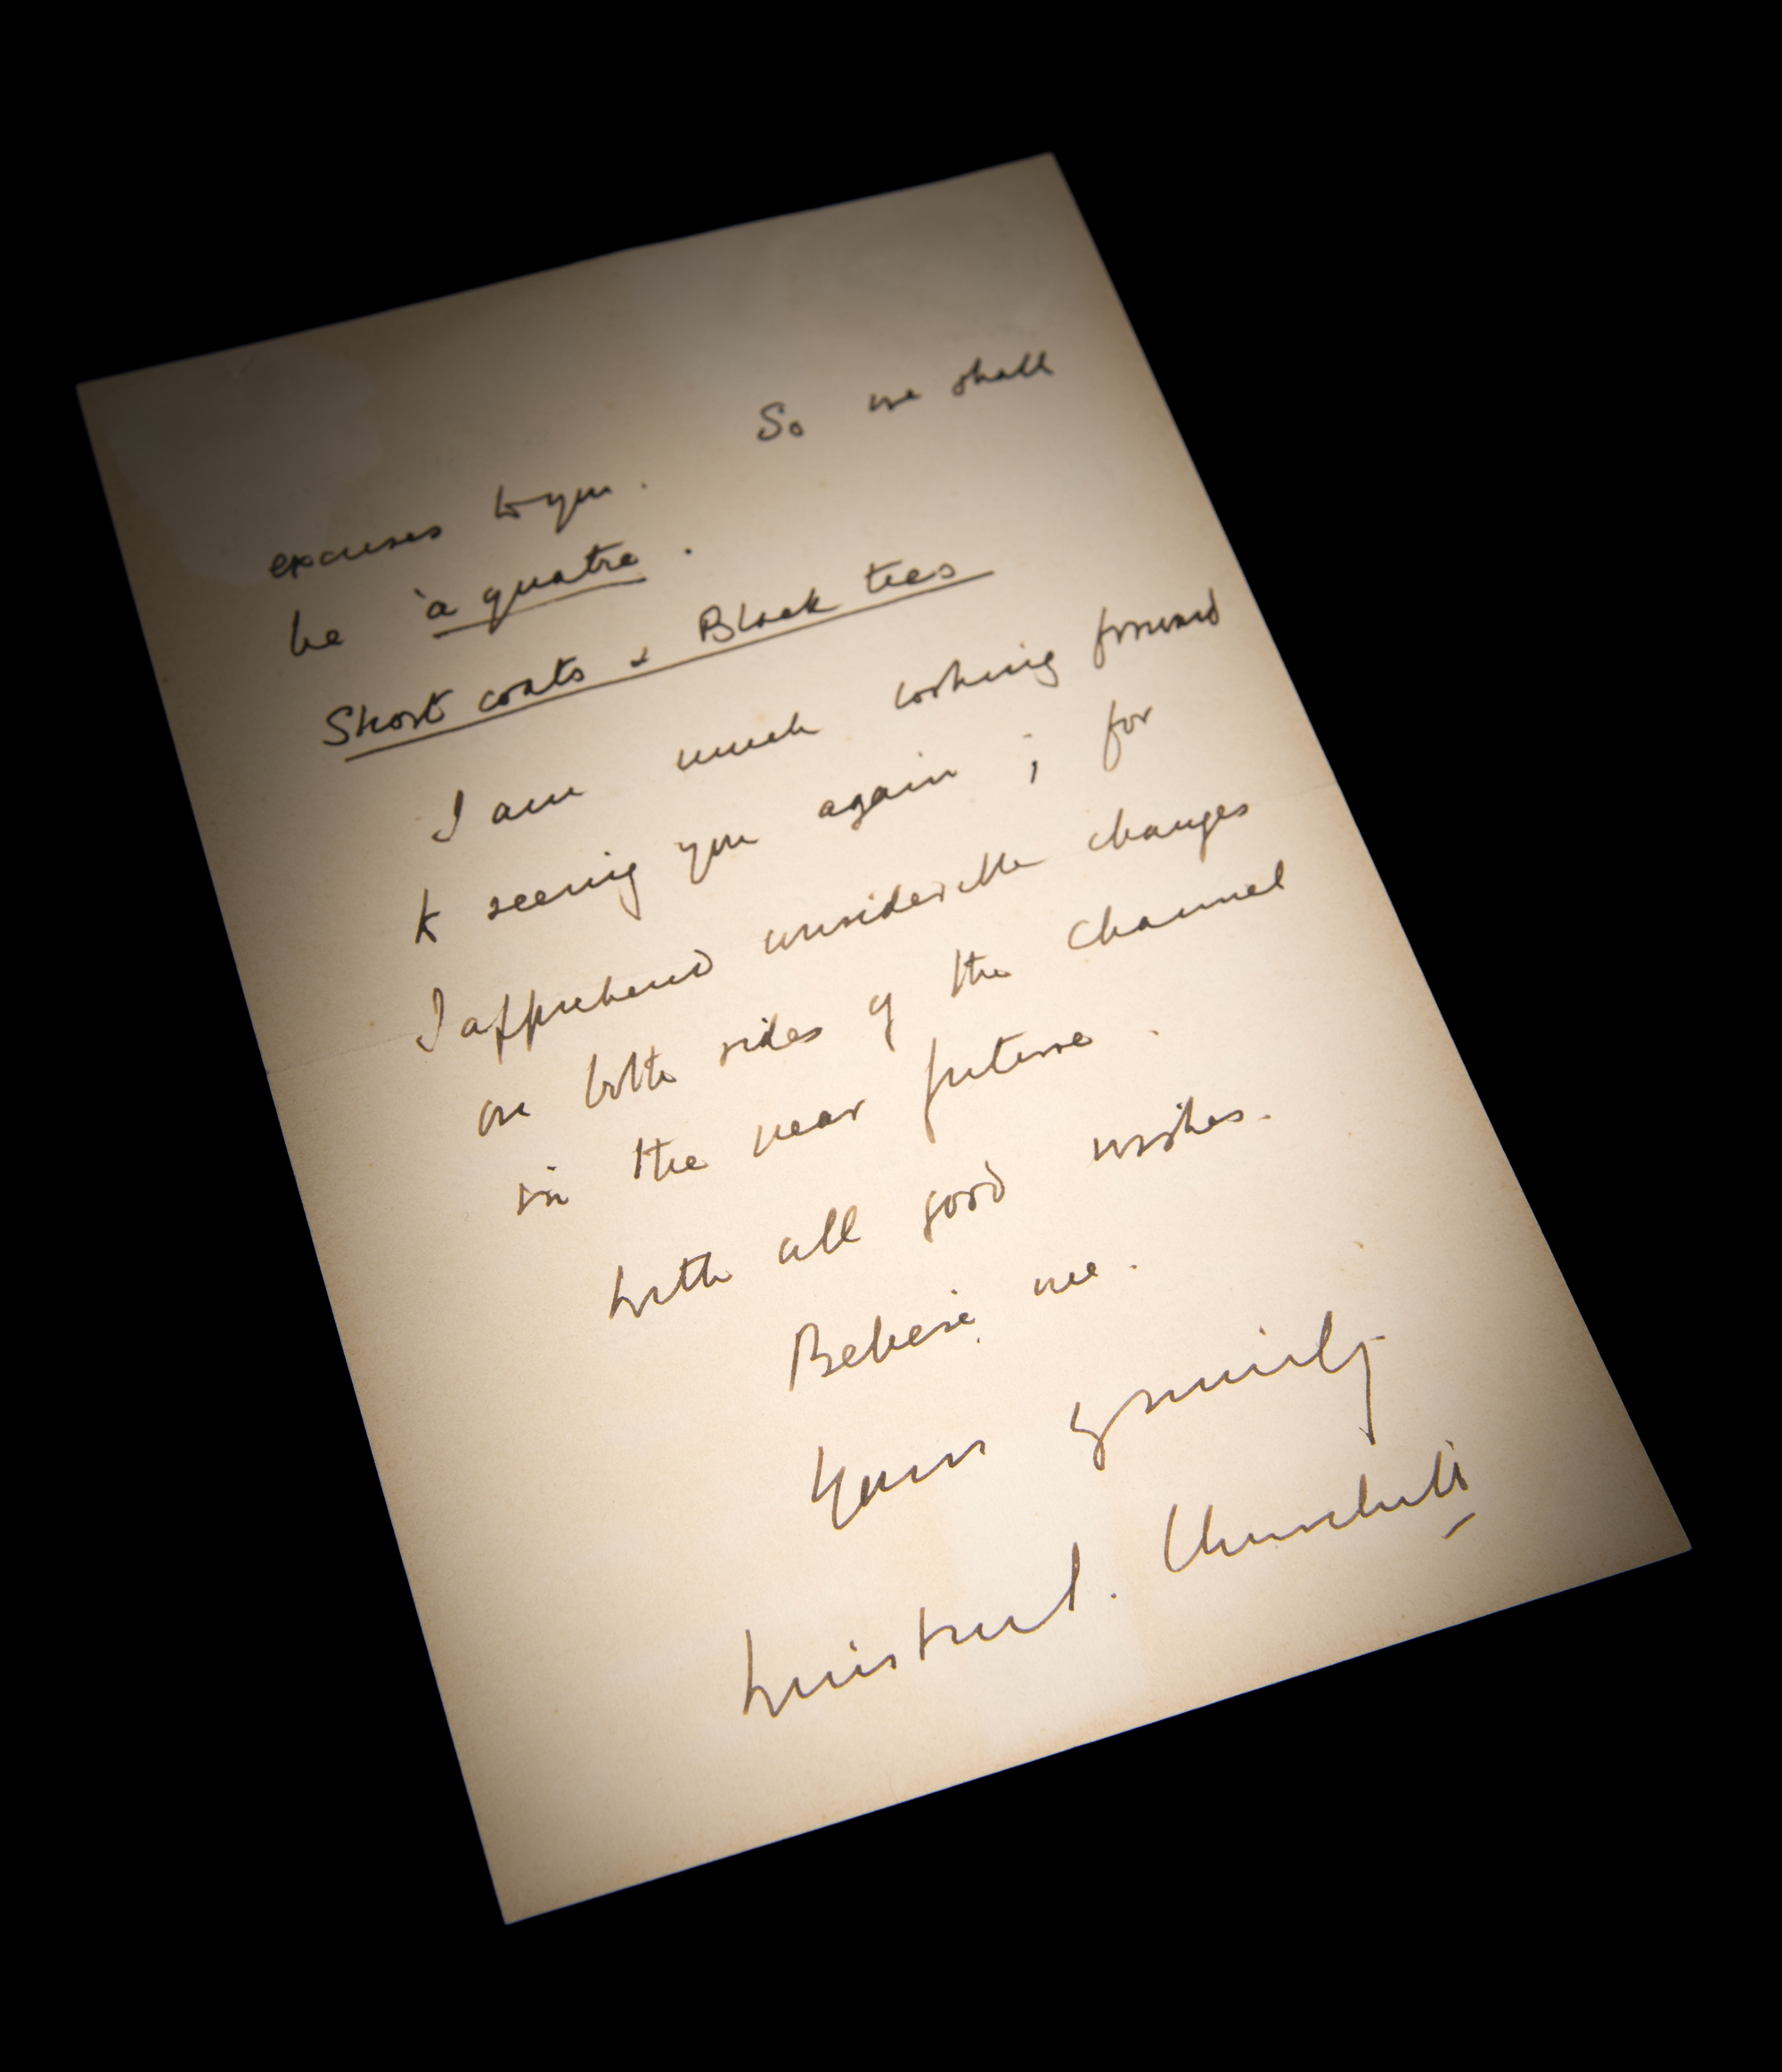 excuses to you. So we shall
be à quatre.
Short coats & Black ties
I am much looking forward
to seeing you again; for
I apprehend considerable changes
on both sides of the Channel
in the near future.
With all good wishes.
Believe me.
Yours sincerely
Winston S. Churchill